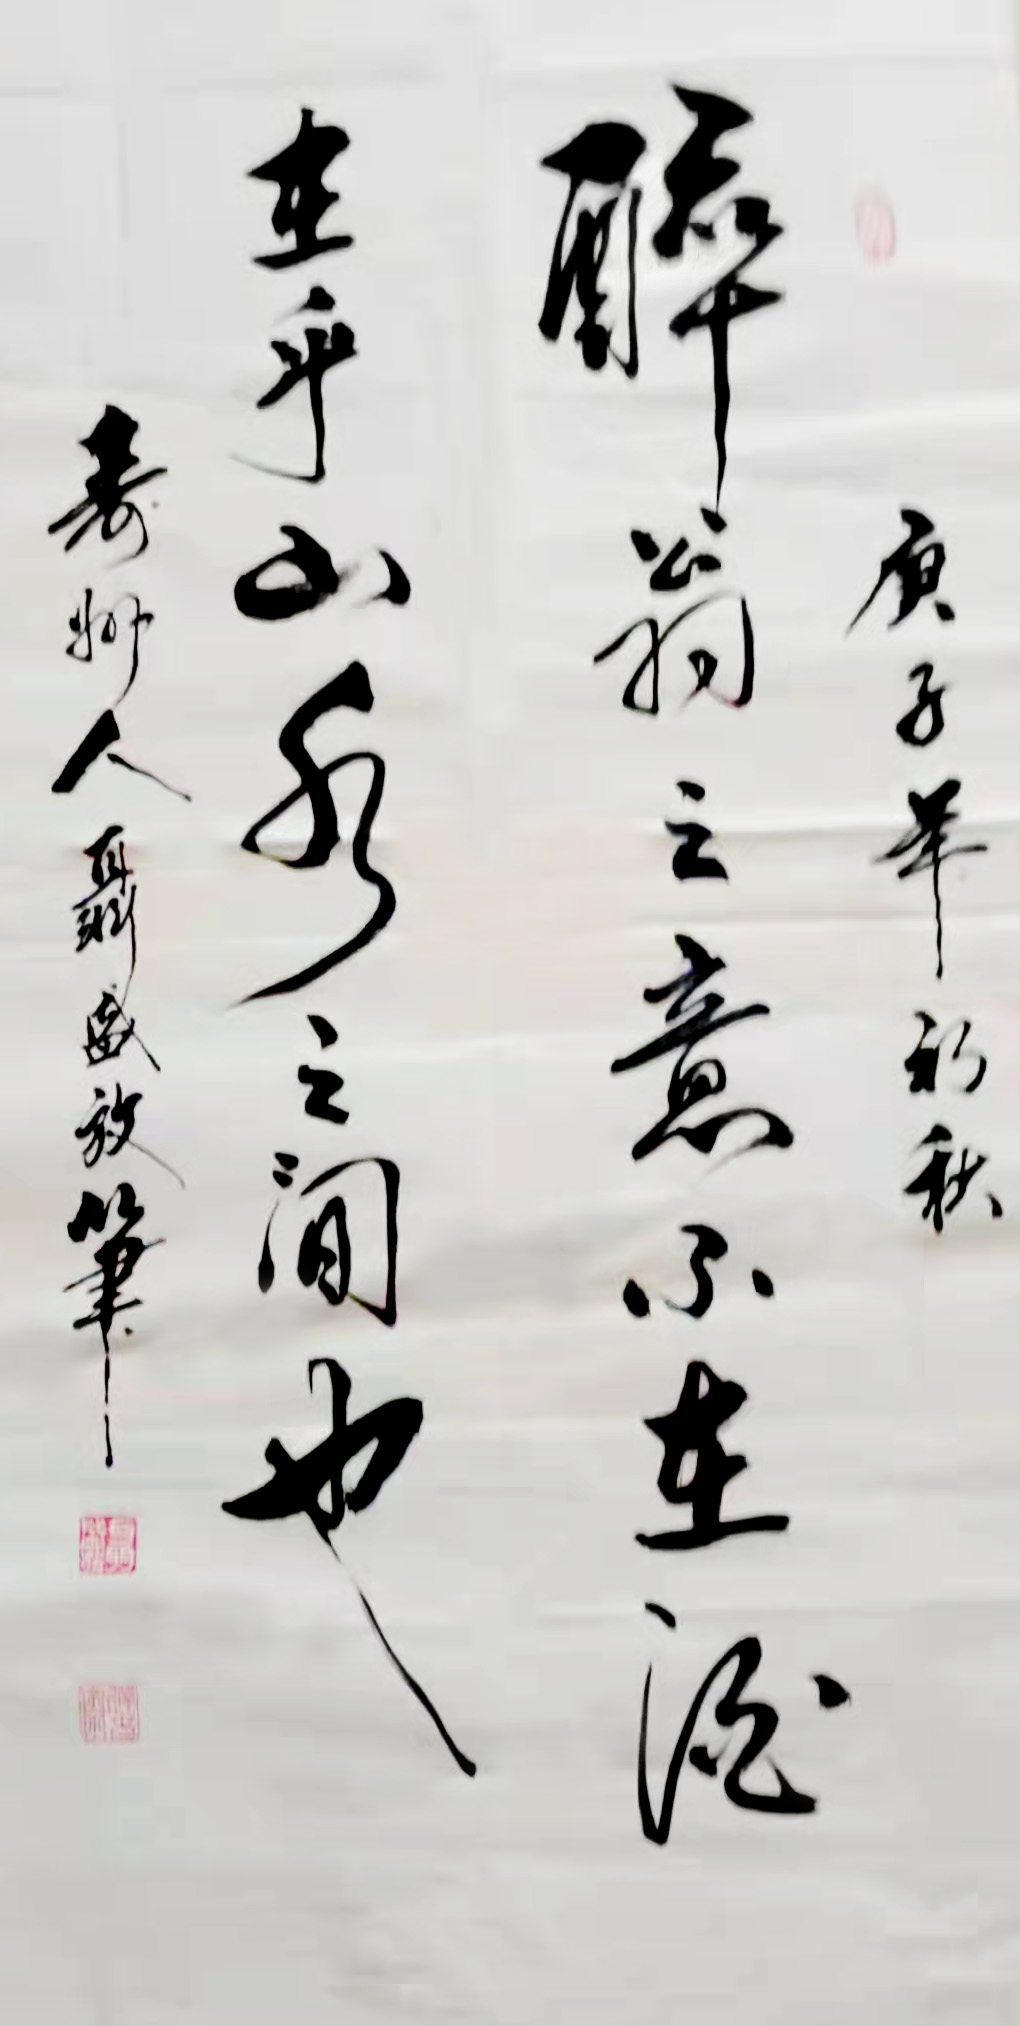 庚子年初秋
醉翁之意不在酒
在乎山水之间也
寿州人聶盛放筆